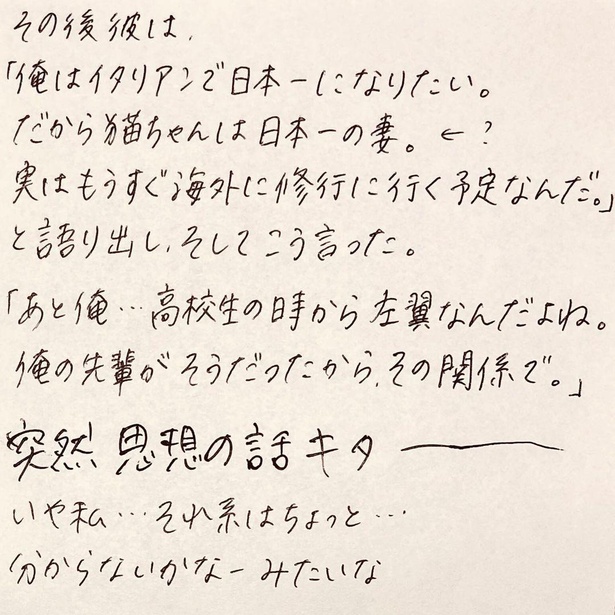 その後彼は、
「俺はイタリアンで日本一になりたい。
だから猫ちゃんは日本一の妻。←?
実はもうすぐ海外に修行に行く予定なんだ。」
と語り出し、そしてこう言った。
「あと俺…高校生の時から左翼なんだよね。
俺の先輩がそうだったから、その関係で。」
突然思想の話キター
いや私…それ系はちょっと…
分からないかなーみたいな